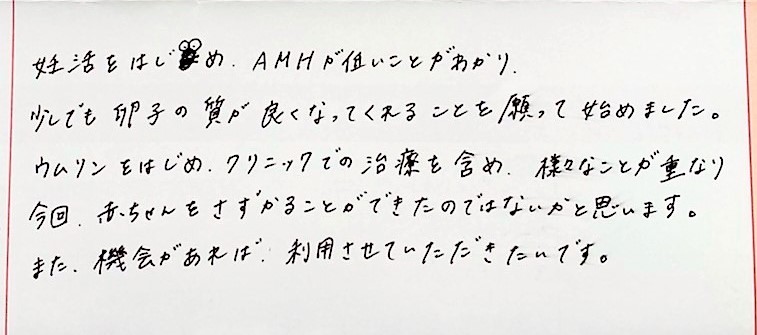 妊活をはじめ、AMHが低いことがわかり、
少しでも卵子の質が良くなってくれることを願って始めました。
ウムリンをはじめ、クリニックでの治療を含め、様々なことが重なり
今回、赤ちゃんをさずかることができたのではないかと思います。
また、機会があれば、利用させていただきたいです。